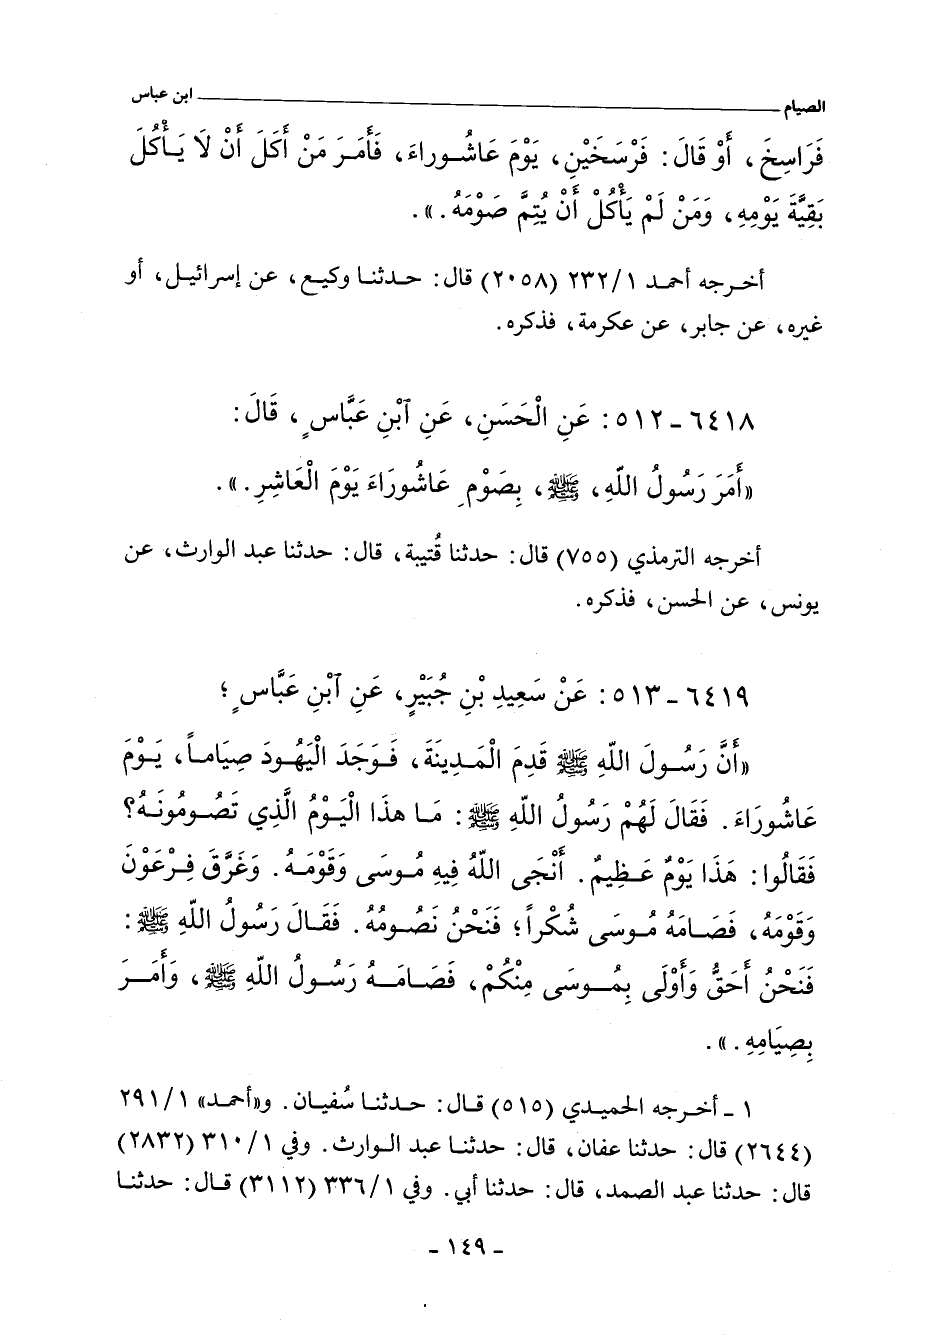 الصيام ــــــــــ ابن عباس
فَرَاسِخَ، أَوْ قَالَ: فَرْسَخَيْنِ، يَوْمَ عَاشُوراءَ، فَأَمَرَ مَنْ أَكَلَ أَنْ لَا يَأْكُلَ
بَقِيَّةَ يَوْمِهِ، وَمَنْ لَمْ يَأْكُلْ أَنْ يُتِمَّ صَوْمَهُ.».
أخرجه أحمد ٢٣٢/١ (٢٠٥٨) قال: حدثنا وكيع، عن إسرائيل، أو
غيره، عن جابر، عن عكرمة، فذكره.
٦٤١٨ - ٥١٢: عَنِ الْحَسَنِ، عَنِ ٱبْنِ عَبَّاسٍ، قَالَ:
«أَمَرَ رَسُولُ اللهِ، ﷺ، بِصَوْمِ عَاشُورَاءَ يَوْمَ الْعَاشِرِ.».
أخرجه الترمذي (٧٥٥) قال: حدثنا قُتيبة، قال: حدثنا عبد الوارث، عن
يونس، عن الحسن، فذكره.
٦٤١٩ - ٥١٣: عَنْ سَعِيدِ بْنِ جُبَيْرٍ، عَنِ ٱبْنِ عَبَّاسٍ؛
«أَنَّ رَسُولَ اللهِ ﷺ قَدِمَ الْمَدِينَةَ، فَوَجَدَ الْيَهُودَ صِيَاماً، يَوْمَ
عَاشُورَاءَ. فَقَالَ لَهُمْ رَسُولُ اللهِ ﷺ: مَا هذَا الْيَوْمُ الَّذِي تَصُومُونَهُ؟
فَقَالُوا: هَذَا يَوْمٌ عَظِيمٌ. أَنْجَى اللهُ فِيهِ مُوسَى وَقَوْمَهُ. وَغَرَّقَ فِرْعَوْنَ
وَقَوْمَهُ، فَصَامَهُ مُوسَى شُكْراً؛ فَنَحْنُ نَصُومُهُ. فَقَالَ رَسُولُ اللهِ ﷺ:
فَنَحْنُ أَحَقُّ وَأَوْلَى بِمُوسَى مِنْكُمْ، فَصَامَهُ رَسُولُ اللهِ ﷺ، وَأَمَرَ
بِصِيَامِهِ.».
١ - أخرجه الحميدي (٥١٥) قال: حدثنا سُفيان. و«أحمد» ٢٩١/١
(٢٦٤٤) قال: حدثنا عفان، قال: حدثنا عبد الوارث. وفي ٣١٠/١ (٢٨٣٢)
قال: حدثنا عبد الصمد، قال: حدثنا أبي. وفي ٣٣٦/١ (٣١١٢) قال: حدثنا
- ١٤٩ -